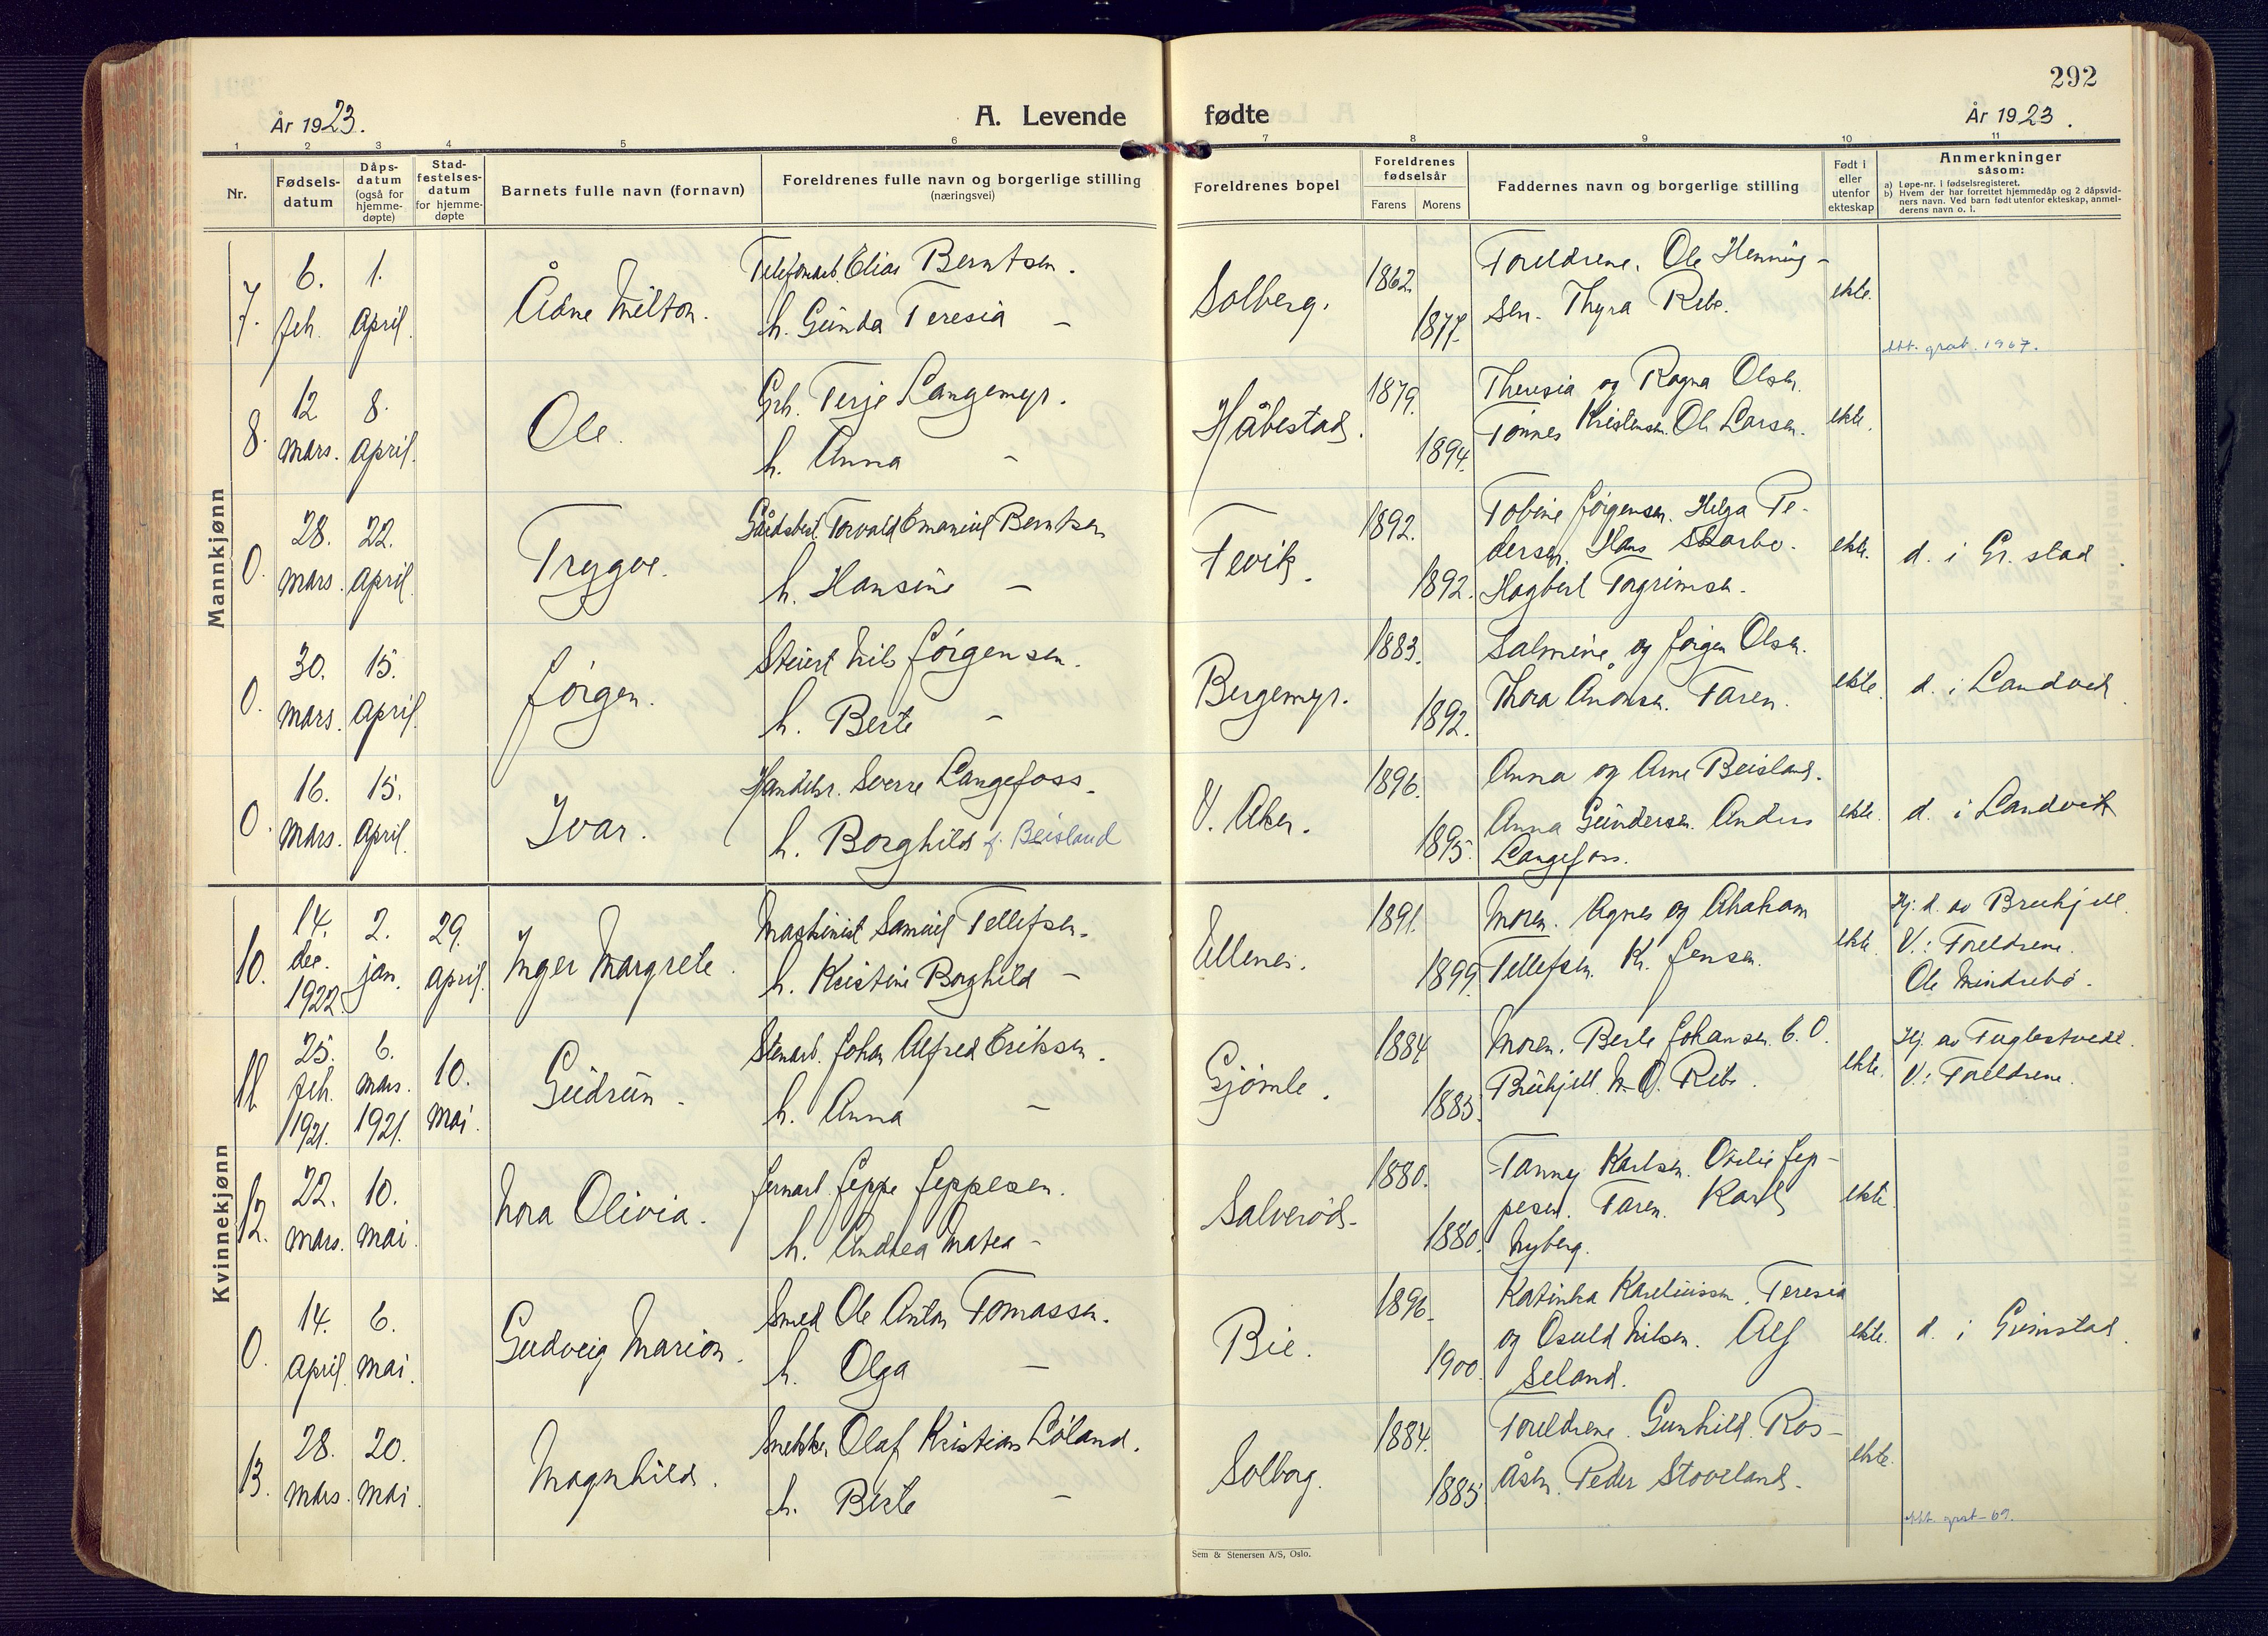 292
År 1923.
A. Levende
fødte
År 1923.
1 2 3 4 5 6 7 8 9 10 11
Nr.
Fødsels-
datum
Dåps-
datum
(også for
hjemme-
døpte)
Stad-
festelses-
datum
for hjemme-
døpte
Barnets fulle navn (fornavn)
Foreldrenes fulle navn og borgerlige stilling
(næringsvei)
Foreldrenes bopel
Foreldrenes
fødselsår
Farens Morens
Faddernes navn og borgerlige stilling
Født i
eller
utenfor
ekteskap
Anmerkninger
såsom:
a) Løpe-nr. i fødselsregisteret.
b) Hvem der har forrettet hjemmedåp og 2 dåpsvid-
ners navn. Ved barn født utenfor ekteskap, anmel-
derens navn o. l.
Mannkjønn
7. 6. Feb. 1. April. Ådne Milton.
Telefonarb. Elias Berntsen.
h. Gunda Teresia –
Solberg. 1862. 1877.
Foreldrene. Ole Henning-
sen. Thyra Ribe.
ekte.
att. grat. 1967.
8. 12 Mars. 8. April. Ole.
Grb. Terje Langemyr.
h. Anna –
Håbestad. 1879. 1894.
Theresia og Ragna Olsen.
Tønnes Kristensen. Ole Larsen.
ekte.
0. 28. Mars. 22. April. Trygve.
Gårdsbest. Torvald Emanuel Berntsen
h. Hansine –
Fevik. 1892. 1892.
Tobine Jørgensen. Helga Pe-
dersen. Hans Skarbo.
Hagbert Torgrimsen.
ekte.
d. i Gr.stad.
0. 30. Mars. 15. April. Jørgen.
Steinst. Nils Jørgensen.
h. Berte –
Bergemyr. 1883. 1892.
Salmine og Jørgen Olsen.
Thora Aanonsen. Faren.
ekte.
d. i Landvik.
0. 16. Mars. 15. April. Ivar.
Handelsr. Sverre Langefoss.
h. Borghild f. Beisland
V. Aker. 1896. 1895.
Anna og Arne Beisland.
Anna Gundersen. Anders
Langefoss.
ekte.
d. i Landvik
Kvinnekjønn
10. 14. dec. 1922. 2. jan. 29. April. Inger Margrete.
Maskinist Samuel Tellefsen.
h. Kristine Borghild –
Ullenes. 1891. 1899.
Moren. Agnes og Abraham
Tellefsen. K. Jensen.
ekte.
Hj. d. av Bruhjell.
V.: Foreldrene.
Ole Mindrebø.
11. 25. Feb. 1921. 6. Mars. 1921. 10. Mai. Gudrun.
Stenarb. Johan Alfred Eriksen.
h. Anna –
Gjømle. 1884 1885.
Moren. Berte Johansen. C. O.
Bruhjell. N. O. Ribe.
ekte.
Hj. av Fuglestvedt.
V.: Foreldrene.
12. 22. Mars. 10. Mai. Nora Olivia.
Jernarb. Jeppe Jeppesen.
h. Andrea Matea –
Salverød. 1880. 1880.
Fanney Karlsen. Otelie Jep-
pesen. Faren. Karl
Nyberg.
ekte.
0. 14. April. 6. Mai. Gudveig Marion.
Smed Ole Anton Tomassen.
h. Olga –
Bie. 1896. 1900.
Katinka Kareliussen. Teresia
og Osuld Nilsen. Alf
Seland.
ekte.
d. i Grimstad.
13. 28. Mars. 20. Mai. Magnhild.
Snekker Olaf Kristian Løland.
h. Berte –
Solborg. 1884. 1885.
Foreldrene. Gunhild Ros-
åsen. Peder Stoveland.
ekte.
att. grat – 69.
Sem & Stenersen A/S, Oslo.